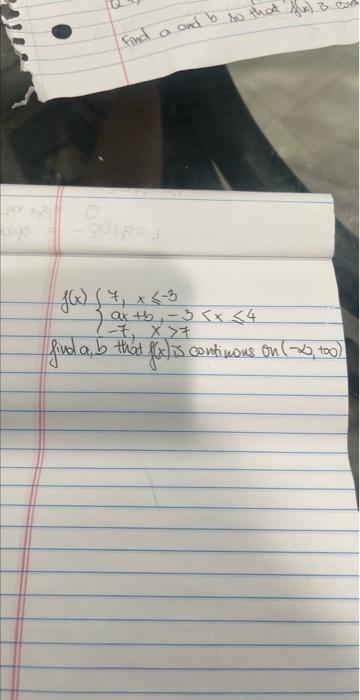 Find a and b so that f(x) is
f(x) { 7, x ≤ -3
ax + b, -3 < x ≤ 4
-7, x > 7
find a, b that f(x) is continous on (-∞, +∞)